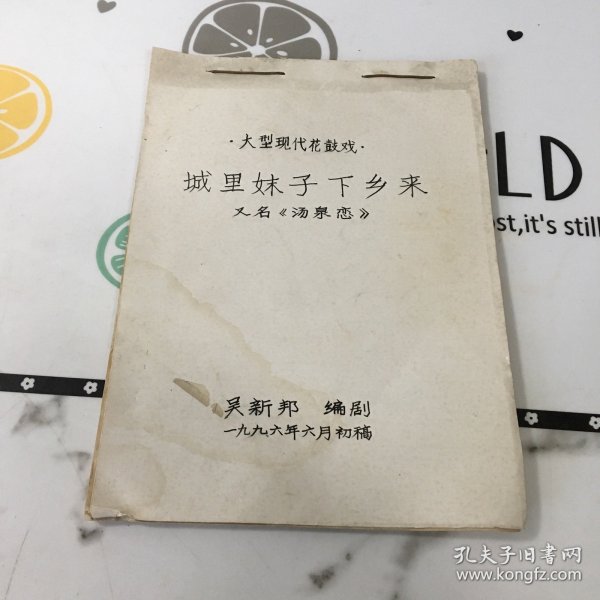 ·大型现代花鼓戏·
城里妹子下乡来
又名《汤泉恋》
吴新邦 编剧
一九九六年六月初稿
LD
ost,it's still
孔夫子旧书网
www.kongfz.com